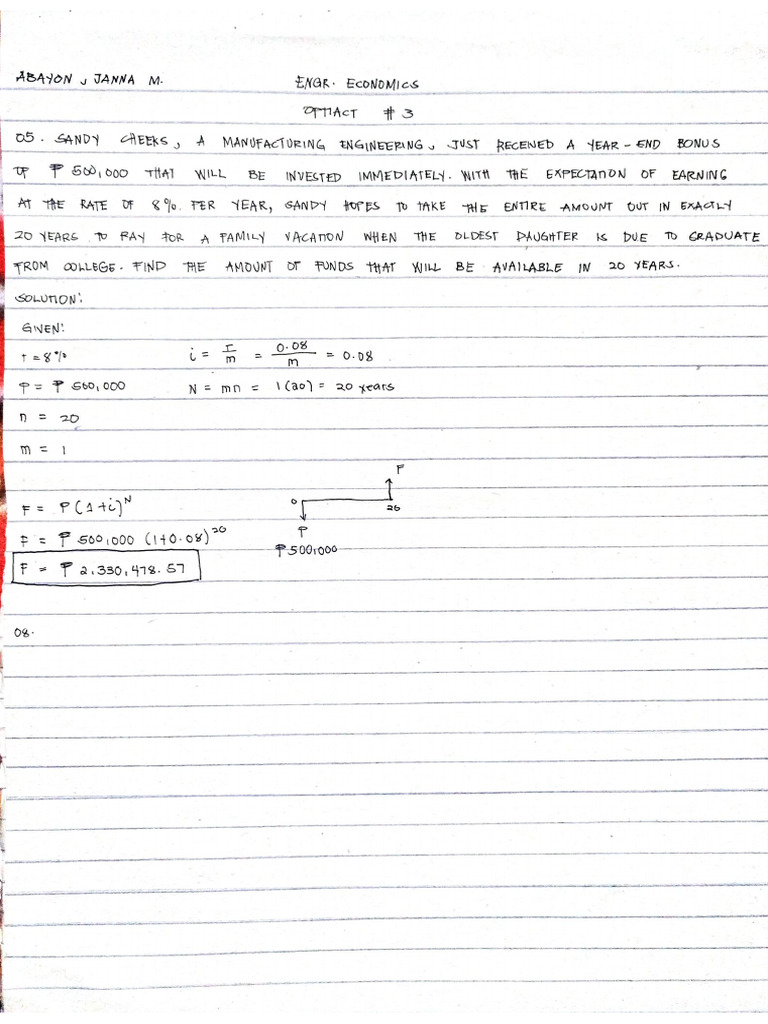 ABAYON, JANNA M. ENGR. ECONOMICS
OPTIACT #3
05. SANDY CHEEKS, A MANUFACTURING ENGINEERING, JUST RECEIVED A YEAR-END BONUS
OF ₱ 500,000 THAT WILL BE INVESTED IMMEDIATELY. WITH THE EXPECTATION OF EARNING
AT THE RATE OF 8% PER YEAR, SANDY HOPES TO TAKE THE ENTIRE AMOUNT OUT IN EXACTLY
20 YEARS TO PAY FOR A FAMILY VACATION WHEN THE OLDEST DAUGHTER IS DUE TO GRADUATE
FROM COLLEGE. FIND THE AMOUNT OF FUNDS THAT WILL BE AVAILABLE IN 20 YEARS.
SOLUTION:
GIVEN:
r = 8% i = r/m = 0.08/m = 0.08
P = ₱ 500,000 N = mn = 1(20) = 20 years
n = 20
m = 1
F
F = P(1+i)^N 0 20
F = ₱ 500,000 (1+0.08)^20 P
₱500,000
F = ₱ 2,330,478.57
08.